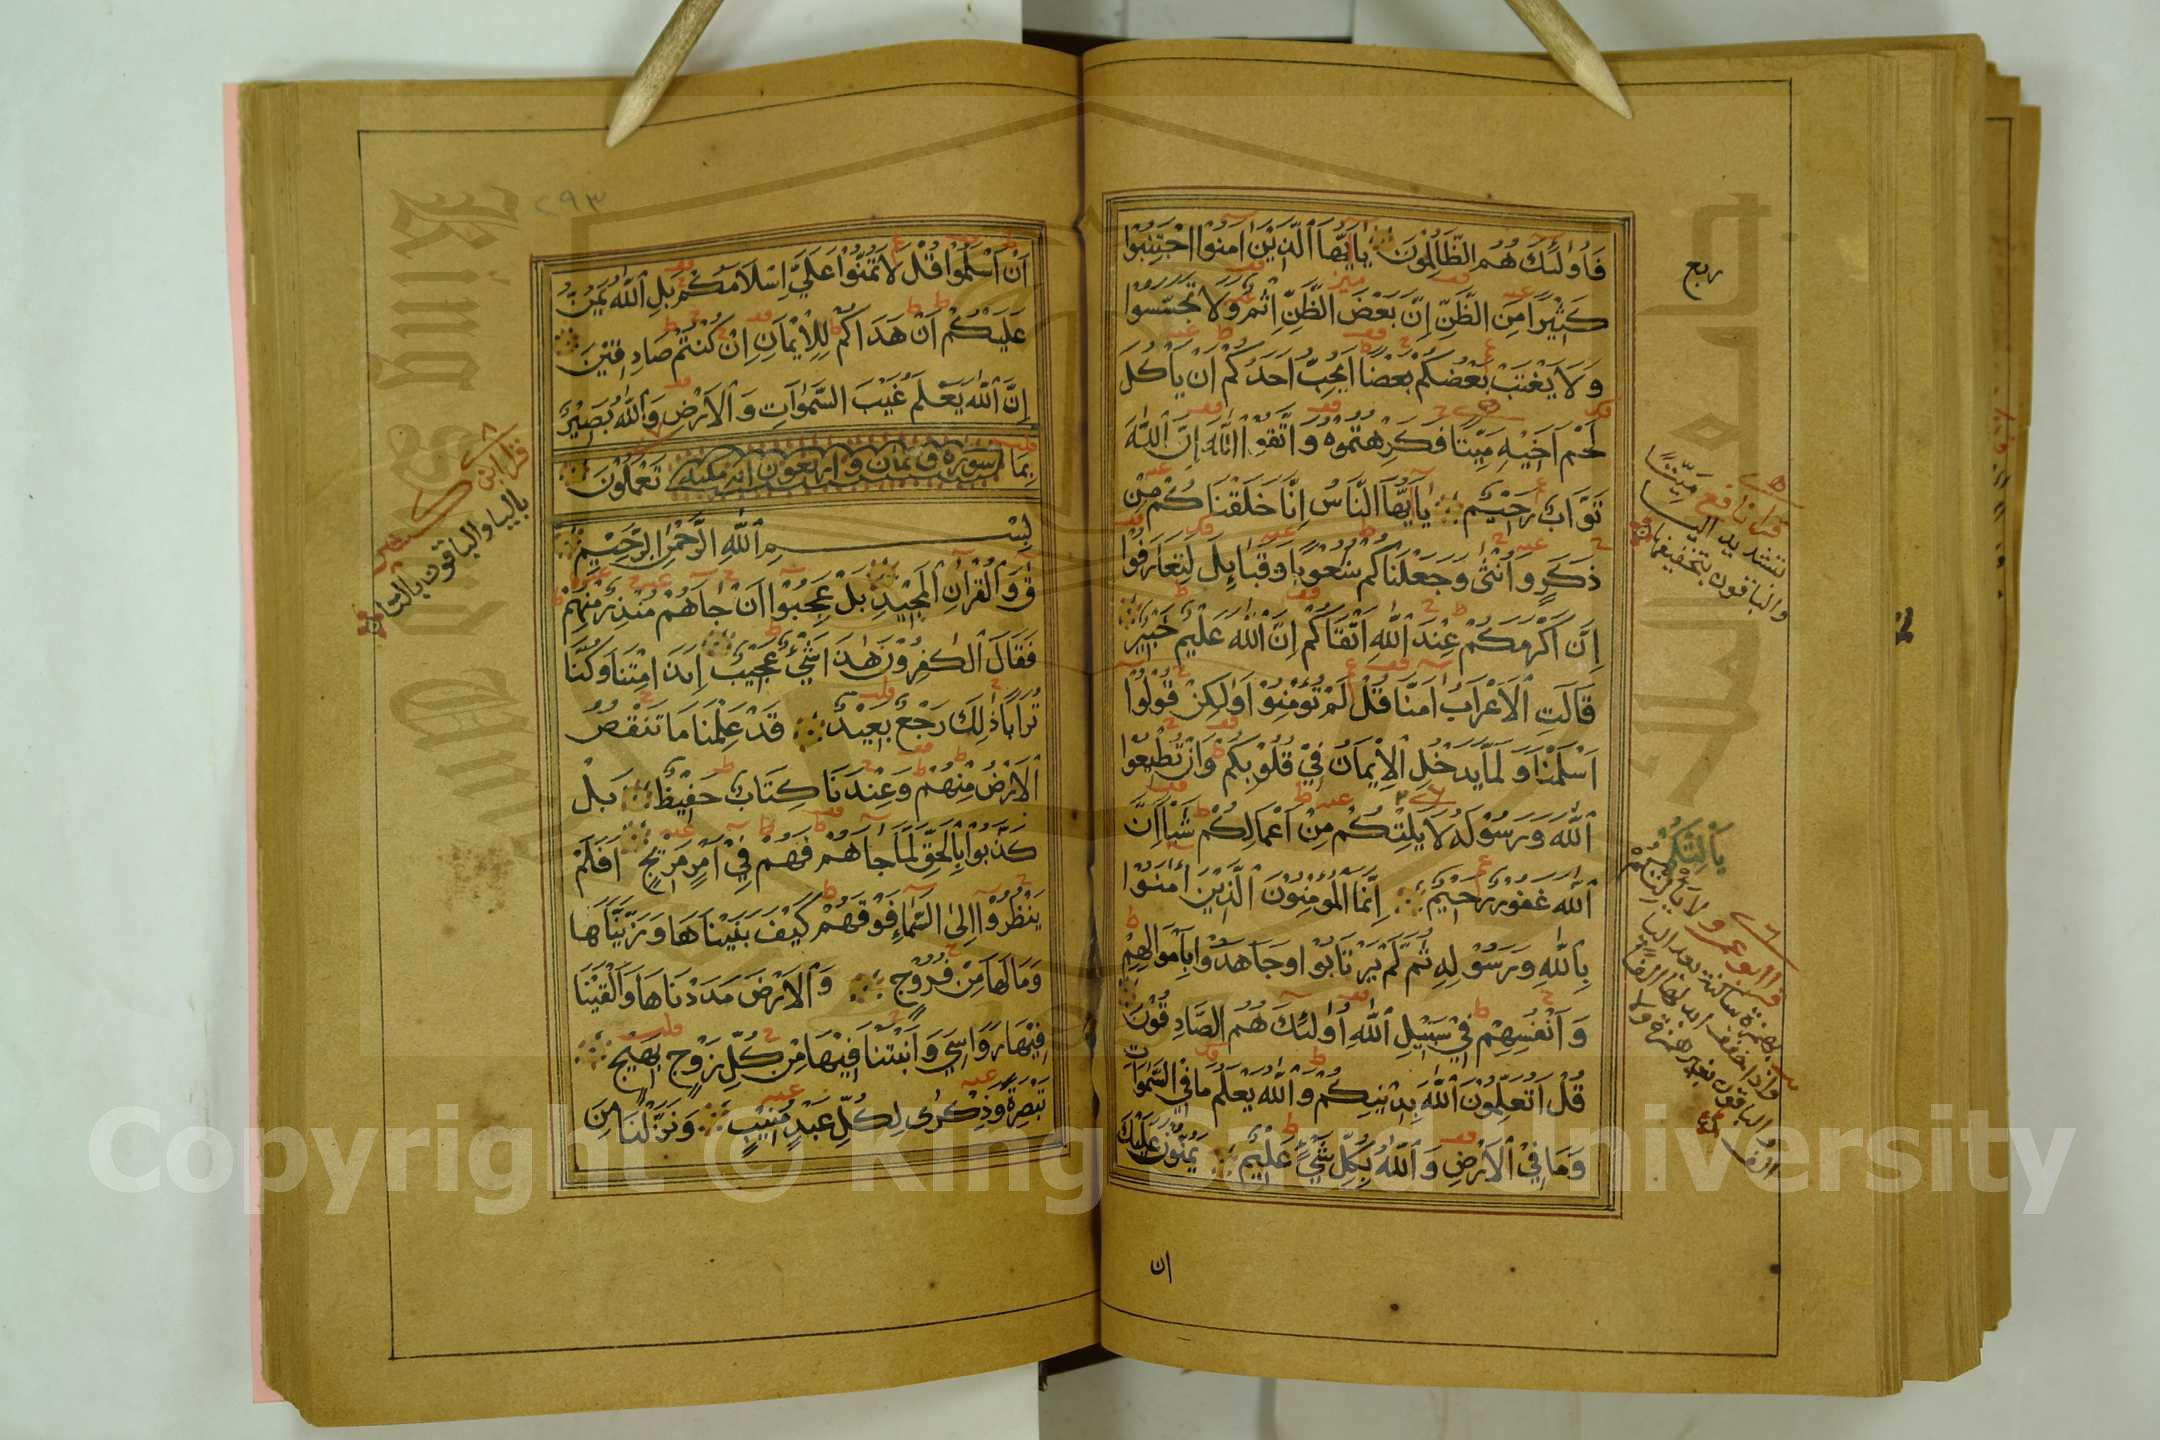 فَاُولٰئِكَ هُمُ الظَّالِمُونَ يَا اَيُّهَا الَّذِيْنَ اٰمَنُوا اجْتَنِبُوْا
كَثِيْرًا مِنَ الظَّنِّ اِنَّ بَعْضَ الظَّنِّ اِثْمٌ وَلَا تَجَسَّسُوْا
وَلَا يَغْتَبْ بَعْضُكُمْ بَعْضًا اَيُحِبُّ اَحَدُكُمْ اَنْ يَأْكُلَ
لَحْمَ اَخِيْهِ مَيِّتًا فَكَرِهْتُمُوْهُ وَاتَّقُوا اللّٰهَ اِنَّ اللّٰهَ
تَوَّابٌ رَحِيْمٌ يَا اَيُّهَا النَّاسُ اِنَّا خَلَقْنَاكُمْ مِنْ
ذَكَرٍ وَاُنْثٰى وَجَعَلْنَاكُمْ شُعُوْبًا وَقَبَائِلَ لِتَعَارَفُوْا
اِنَّ اَكْرَمَكُمْ عِنْدَ اللّٰهِ اَتْقَاكُمْ اِنَّ اللّٰهَ عَلِيْمٌ خَبِيْرٌ
قَالَتِ الْاَعْرَابُ اٰمَنَّا قُلْ لَمْ تُؤْمِنُوْا وَلٰكِنْ قُوْلُوْا
اَسْلَمْنَا وَلَمَّا يَدْخُلِ الْاِيْمَانُ فِيْ قُلُوْبِكُمْ وَاِنْ تُطِيْعُوا
اللّٰهَ وَرَسُوْلَهُ لَا يَلِتْكُمْ مِنْ اَعْمَالِكُمْ شَيْأً اِنَّ
اللّٰهَ غَفُوْرٌ رَحِيْمٌ اِنَّمَا الْمُؤْمِنُوْنَ الَّذِيْنَ اٰمَنُوْا
بِاللّٰهِ وَرَسُوْلِهِ ثُمَّ لَمْ يَرْتَابُوْا وَجَاهَدُوْا بِاَمْوَالِهِمْ
وَاَنْفُسِهِمْ فِيْ سَبِيْلِ اللّٰهِ اُولٰئِكَ هُمُ الصَّادِقُوْنَ
قُلْ اَتُعَلِّمُوْنَ اللّٰهَ بِدِيْنِكُمْ وَاللّٰهُ يَعْلَمُ مَا فِي السَّمٰوَاتِ
وَمَا فِيْ الْاَرْضِ وَاللّٰهُ بِكُلِّ شَيْءٍ عَلِيْمٌ يَمُنُّوْنَ عَلَيْكَ
ان
ربع
قرا نافع مَيِّتًا
بتشديد اليا
والباقون بتخفيفها
يَأْلِتْكُمْ
قرا ابو عمرو لا يألتكم
بهمزة ساكنة بعد اليا
واذا خفف ابدلها الفا
والباقون بغير همزة ولا
الف
٢٩٣
اَنْ اَسْلَمُوْا قُلْ لَا تَمُنُّوْا عَلَيَّ اِسْلَامَكُمْ بَلِ اللّٰهُ يَمُنُّ
عَلَيْكُمْ اَنْ هَدَاكُمْ لِلْاِيْمَانِ اِنْ كُنْتُمْ صَادِقِيْنَ
اِنَّ اللّٰهَ يَعْلَمُ غَيْبَ السَّمٰوَاتِ وَالْاَرْضِ وَاللّٰهُ بَصِيْرٌ
بِمَا سورة ق ثمان واربعون اية مكية تَعْمَلُوْنَ
بِسْمِ اللّٰهِ الرَّحْمٰنِ الرَّحِيْمِ
قٓ وَالْقُرْاٰنِ الْمَجِيْدِ بَلْ عَجِبُوْا اَنْ جَاهُمْ مُنْذِرٌ مِنْهُمْ
فَقَالَ الْكٰفِرُوْنَ هٰذَا شَيْءٌ عَجِيْبٌ اَءِذَا مِتْنَا وَكُنَّا
تُرَابًا ذٰلِكَ رَجْعٌ بَعِيْدٌ قَدْ عَلِمْنَا مَا تَنْقُصُ
الْاَرْضُ مِنْهُمْ وَعِنْدَنَا كِتَابٌ حَفِيْظٌ بَلْ
كَذَّبُوْا بِالْحَقِّ لَمَّا جَاهُمْ فَهُمْ فِيْ اَمْرٍ مَرِيْجٍ اَفَلَمْ
يَنْظُرُوْا اِلَى السَّمَاءِ فَوْقَهُمْ كَيْفَ بَنَيْنَاهَا وَزَيَّنَّاهَا
وَمَا لَهَا مِنْ فُرُوْجٍ وَالْاَرْضَ مَدَدْنَاهَا وَاَلْقَيْنَا
فِيْهَا رَوَاسِيَ وَاَنْبَتْنَا فِيْهَا مِنْ كُلِّ زَوْجٍ بَهِيْجٍ
تَبْصِرَةً وَذِكْرٰى لِكُلِّ عَبْدٍ مُنِيْبٍ وَنَزَّلْنَا مِنَ
قرا ابن كثير
باليا والباقون بالتا
Copyright © King Saud University